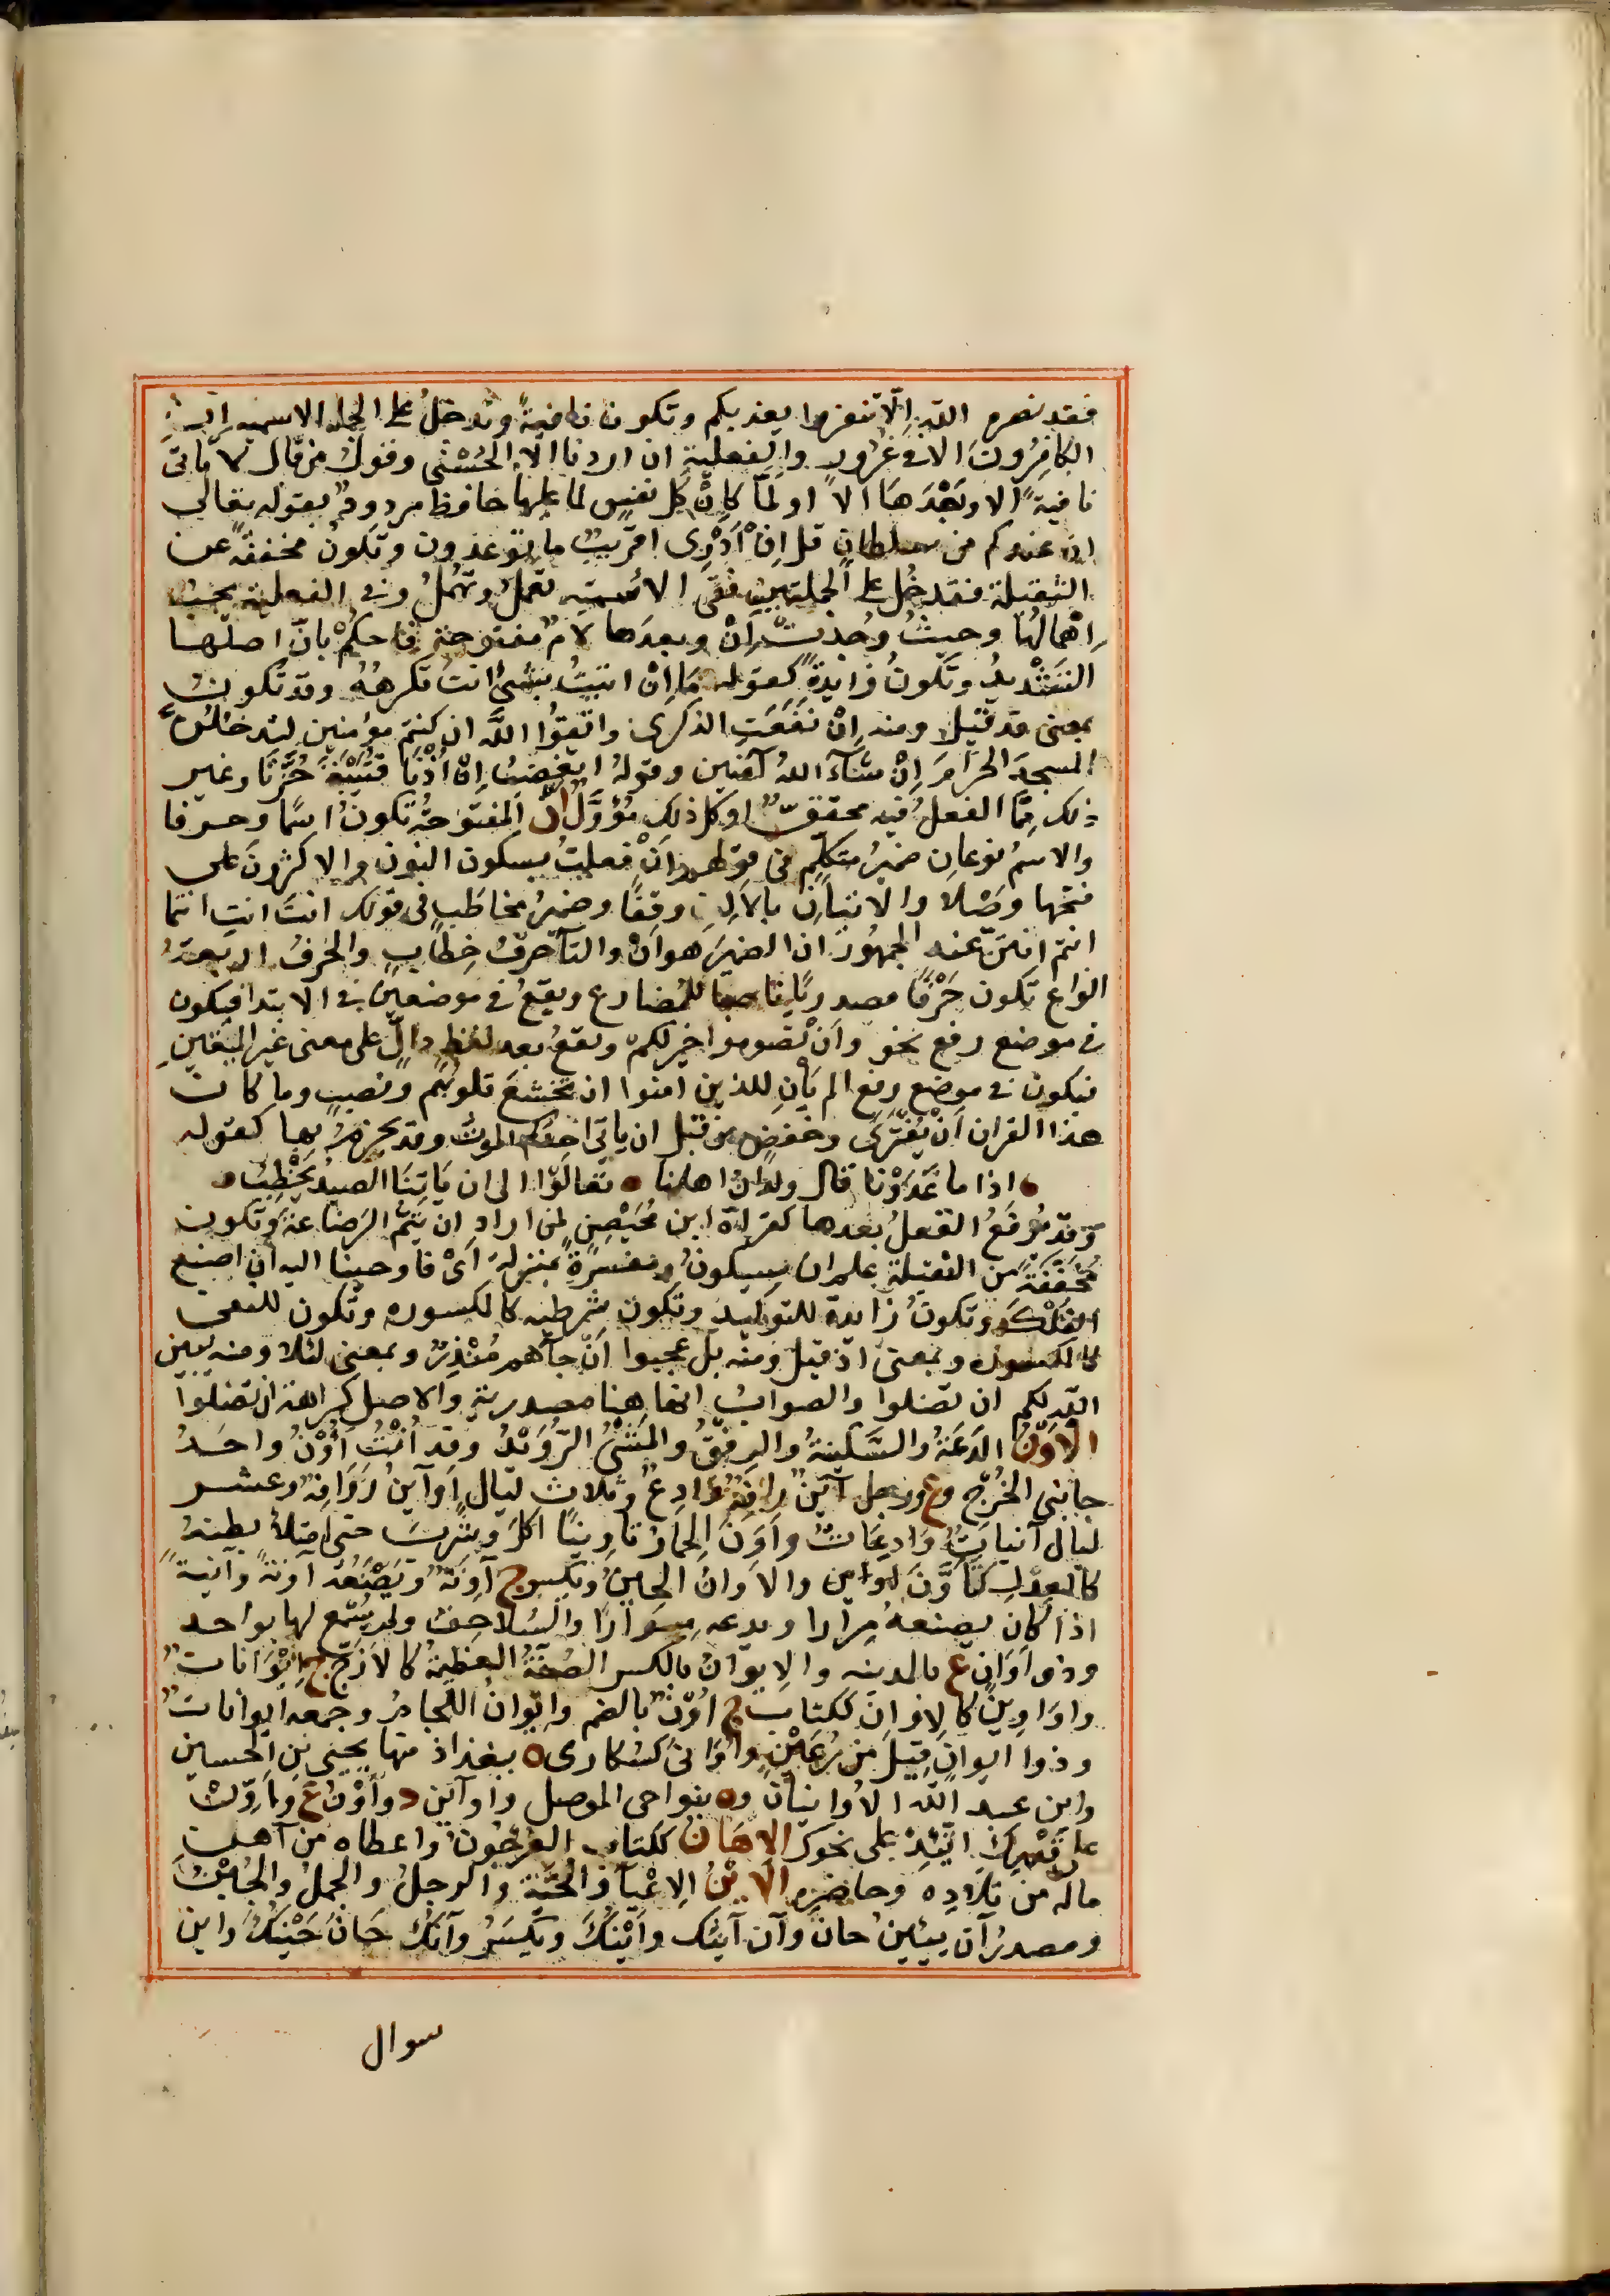 فقد نصره الله اِلّا تنفروا يعذبكم وتكون نافيةً وتدخلُ على الجمله الاسميه اِنِ
الكافِرُونَ الا فى غُرُورٍ والفعلية ان اردنا الّا الحُسْنى وقولُ من قال لا تاتى
نافيةً الا وبَعْدَهَا الّا او لَمّا كاِنْ كل نفسٍ لما عليها حافظ مردودٌ بقوله تعالى
ان عندكم من سلطانٍ قل اِنْ اَدْرِى اقريبٌ ما توعدون وتكونُ مخففةً عن
الثقيلة فتدخُل على الجملتين ففى الاسميه تعملُ وتهملُ وفى الفعلية يجبُ
اِهْمالُها وحيثُ وُجِدَتْ اِنْ وبعدها لامٌ مفتوحة فاحكم بانّ اصلها
التشْديدُ وتكونُ زايدةً كقوله مَا اِنْ اتيتُ بشئٍ انتَ تكرهُهُ وقد تكون
بمعنى قد قيل ومنه اِنْ نفعَتِ الذكرى واتّقوُا اللّه ان كنتم مؤمنين لتدخلُنّ
المسجدَ الحرَامَ اِنْ شآءَ اللهُ آمنين وقولهُ اتغضبُ اِنْ اُذْنَا قتَيْبَةَ حُزَّتَا وغير
ذلك مِمّا الفعلُ فيه محققٌ او كل ذلك مُؤوَّلٌ اَنْ المفتوحةُ تكونُ اسمًا وحرفا
والاسمُ نوعانِ ضميرُ متكلّمٍ فى قولهم اَنْ فعلتُ بسكون النون والاكثرونَ على
فتحها وصْلا والاتيانِ بالالِف وقفًا وضميرُ مخاطَبٍ فى قولك انتَ انتِ انتما
انتم انتنّ عند الجمهورِ ان الضميرَ هو اَنْ والتآ حرفُ خِطابٍ والحرفُ اربعة
انواع تكون حَرْفًا مصدريّا ناصبا للمضارع ويقعُ فى موضعين فى الابتدا فيكون
فى موضع رفع نحو واَنْ تصوموا خير لكم وتقعُ بعد لفظٍ دالٍّ على معنى غير اليقينِ
فيكون فى موضع رفع الم يَأنِ للذين امنوا ان تخشعَ قلوبُهُم ونصبٍ وما كان
هذا القران اَنْ يُفْتَرَى وخفضٍ من قبل ان ياتىَ احدكم الموتُ وقد يجزمُ بها كقوله
اذا ما غَدَوْنا قال ولدانُ اهلنا تعالَوْا الى ان يَاتِنَا الصيدُ نَحْطِبُ
وَقد يُرفَعُ الفعلُ بعدها كقرآة ابن مُحَيْصِنٍ لمن اراد ان يُتِمُّ الرَضاعةَ وتكون
مُخَفَّفَةً من الثقيلة علم ان سيكونُ ومفسرةً بمنزلة اَىْ فاوحينا اليه انِ اصنع
الفلك وتكونُ زايدة للتوكيد وتكون شرطيه كالمكسوره وتكون للنفى
كالمكسوره وبمعنى اذ قيل ومنه بل عجبوا اَنْ جآهم مُنْذِرٌ وبمعنى لئلا ومنه يبين
اللّه لكم ان تضلوا والصوابُ انها هنا مصدرية والاصل كراهة ان تضلوا
الاَوْنُ الدَعَةُ والسَّكينةُ والرِفقُ والمَشْىُ الرُّوَيْدُ وقد اُنْتُ اَؤُنُ واحدُ
جانبى الخُرْجِ وع ورجل آيَنٌ رافِهٌ وَادِعٌ وثلاث ليالٍ اَوَآيِنُ رَوَافِهُ وعشر
ليال آيناتٌ وَادِعَاتٌ واَوَّنَ الحمارُ تاوينًا اكلَ وشربَ حتى امتلأ بطنهُ
كالعِدْلِ كتاَوَّنَ والاَوَانُ الحِينُ ويكسرج آوِنَةٌ ويَصْنَعُهُ آوِنَةً وآئِنَةً
اذا كان يصنعهُ مِرارا ويدعه مِرَارًا والسُلاحِفُ ولم يُسْمَع لها بواحد
وذو اَوَانٍ ع بالمدينه والاِيوانُ بالكسر الصُفّةُ العظيمةُ كالاَزَجِ ج اِيْوَاناتٌ
واوَاوِينُ كالاِوَانِ ككتابٍ ج اُوْنٌ بالضم واِيْوانُ اللِّجامُ وجمعه ايواناتٌ
وذوا ايوانٍ قَيْلٌ من رُعَيْنٍ واوَانىَ كسُكارى ه ببغداذ منها يحيى بن الحسين
وابن عبد اللّه الاَوانيانِ وه بنواحى الموصل واوآين د واَوْنٌ ع وتاَوَّنْ
على قَدْرِكَ اتّئِدْ على نحوك الاِهَانُ ككتاب العُرجُونُ واعطاه من آهنِ
مالِه من تلادِه وحاضرِه الاَيْنُ الاِعْيآ والحَيّة والرجلُ والجملُ والحِيْنُ
ومصدرُ آن يئينُ حانَ وآن آينُك واَيْنُكَ ويُكسَرُ وآنُكَ حَانَ حَيْنُكَ واين
سوال